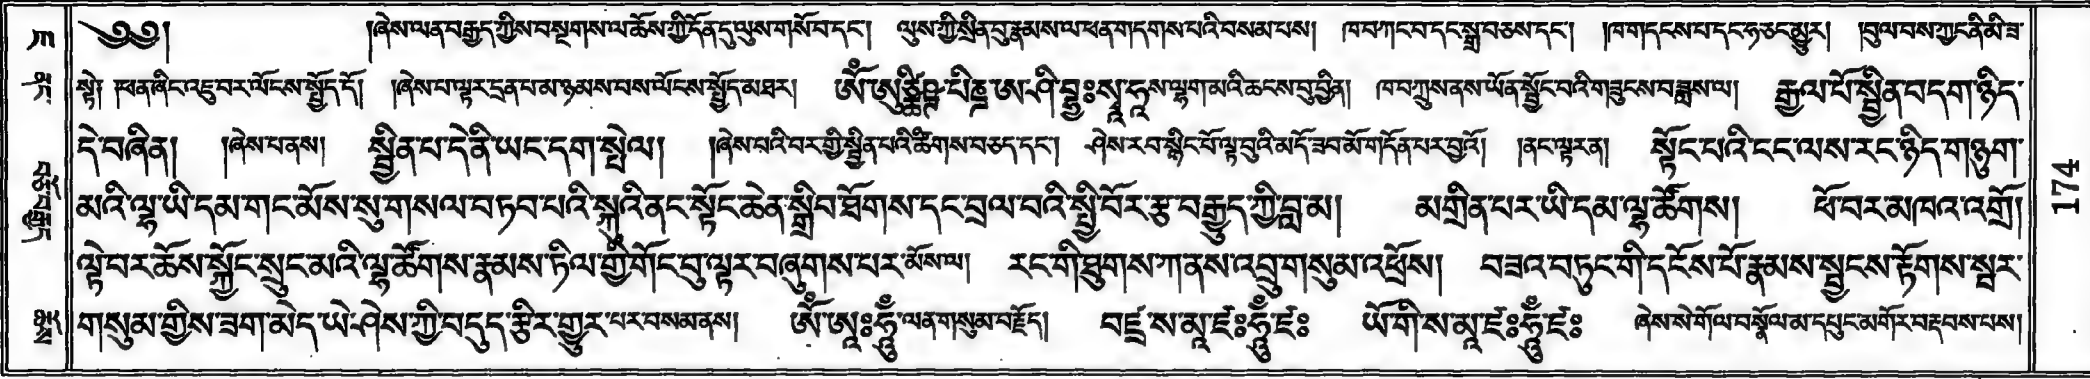 ༄༅། །ཞེས་ལན་བརྒྱད་ཀྱིས་བསྔགས་ལ་ཆོས་ཀྱི་དོན་དུ་ལུས་གསོ་བ་དང་། ལུས་ཀྱི་སྲིན་བུ་རྣམས་ལ་ཕན་གདགས་པའི་བསམ་པས། ཁ་བཀང་བ་དང་སྒྲ་བཅས་དང་། །ཁ་གདངས་པ་དང་ཧ་ཅང་མྱུར། །བུལ་བས་ཀྱང་ནི་མི་ཟ་
སྟེ། ཁན་ཞིང་འཇུ་བར་ལོངས་སྤྱོད་དོ། །ཞེས་པ་ལྟར་དྲན་པ་མ་ཉམས་བས་ལོངས་སྤྱོད་མཐར། ཨོཾ་ཨུ་ཙྪིཥྚ་པིཎྜ་ཨ་ཤི་བྷྱཿསྭཱ་ཧཱ་ས་ལྷག་མའི་ཆངས་བུ་བྱིན། ཁ་བཀྲུས་ནས་ཡོན་སྦྱོང་བའི་གཟུངས་བཟླས་ལ། རྒྱལ་པོ་སྦྱིན་བདག་ཉིད་
དེ་བཞིན། །ཞེས་པ་ནས། སྦྱིན་པ་དེ་ནི་ཡང་དག་སྤེལ། །ཞེས་པའི་བར་གྱི་སྦྱིན་པའི་ཚིགས་བཅད་དང་། ཤེས་རབ་སྙིང་པོ་ལྟ་བུའི་མདོ་ཟབ་མོ་གདོན་པར་བྱའོ། །ནང་ལྟར་ན། སྟོང་པའི་ངང་ལས་རང་ཉིད་གཉུག་
མའི་ལྷ་ཡི་དམ་གང་མོས་སུ་གསལ་བཏབ་པའི་སྐུའི་ནང་སྟོང་ཆེན་སྒྲིབ་ཐོགས་དང་བྲལ་བའི་སྤྱི་བོར་རྩ་བརྒྱུད་ཀྱི་བླ་མ། མགྲིན་པར་ཡི་དམ་ལྷ་ཚོགས། ཕོ་བར་མཁའ་འགྲོ།
ལྟེ་བར་ཆོས་སྐྱོང་སྲུང་མའི་ལྷ་ཚོགས་རྣམས་ཏིལ་གྱི་གོང་བུ་ལྟར་བཞུགས་པར་མོས་ལ། རང་གི་ཐུགས་ཀ་ནས་འབྲུ་གསུམ་འཕྲོས། བཟའ་བཏུང་གི་དངོས་པོ་རྣམས་སྦྱངས་རྟོགས་སྦར་
གསུམ་གྱིས་ཟག་མེད་ཡེ་ཤེས་ཀྱི་བདུད་རྩིར་གྱུར་པར་བསམ་ནས། ཨོཾ་ཨཱཿཧཱུྃ་ལན་གསུམ་བརྗོད། བཛྲ་ས་མཱ་ཛཿཧཱུྃ་ཛཿ ཡོ་གི་ས་མཱ་ཛཿཧཱུྃ་ཛཿ ཞེས་སེ་གོལ་བསྣོལ་མ་དཔུང་མགོར་བརྡབས་པས།
174